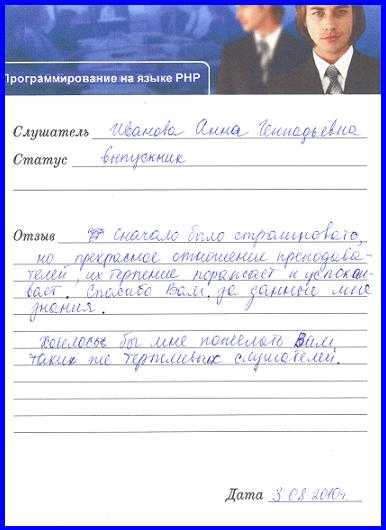 Программирование на языке PHP
Слушатель Иванова Анна Геннадьевна
Статус выпускник
Отзыв Сначало было страшновато,
но прекрасное отношение преподава-
телей, их терпение поражает и успокаи-
вает. Спасибо Вам, за данные мне
знания.
Хотелось бы мне пожелать Вам
таких же терпеливых слушателей.
Дата 3.08.2010г.